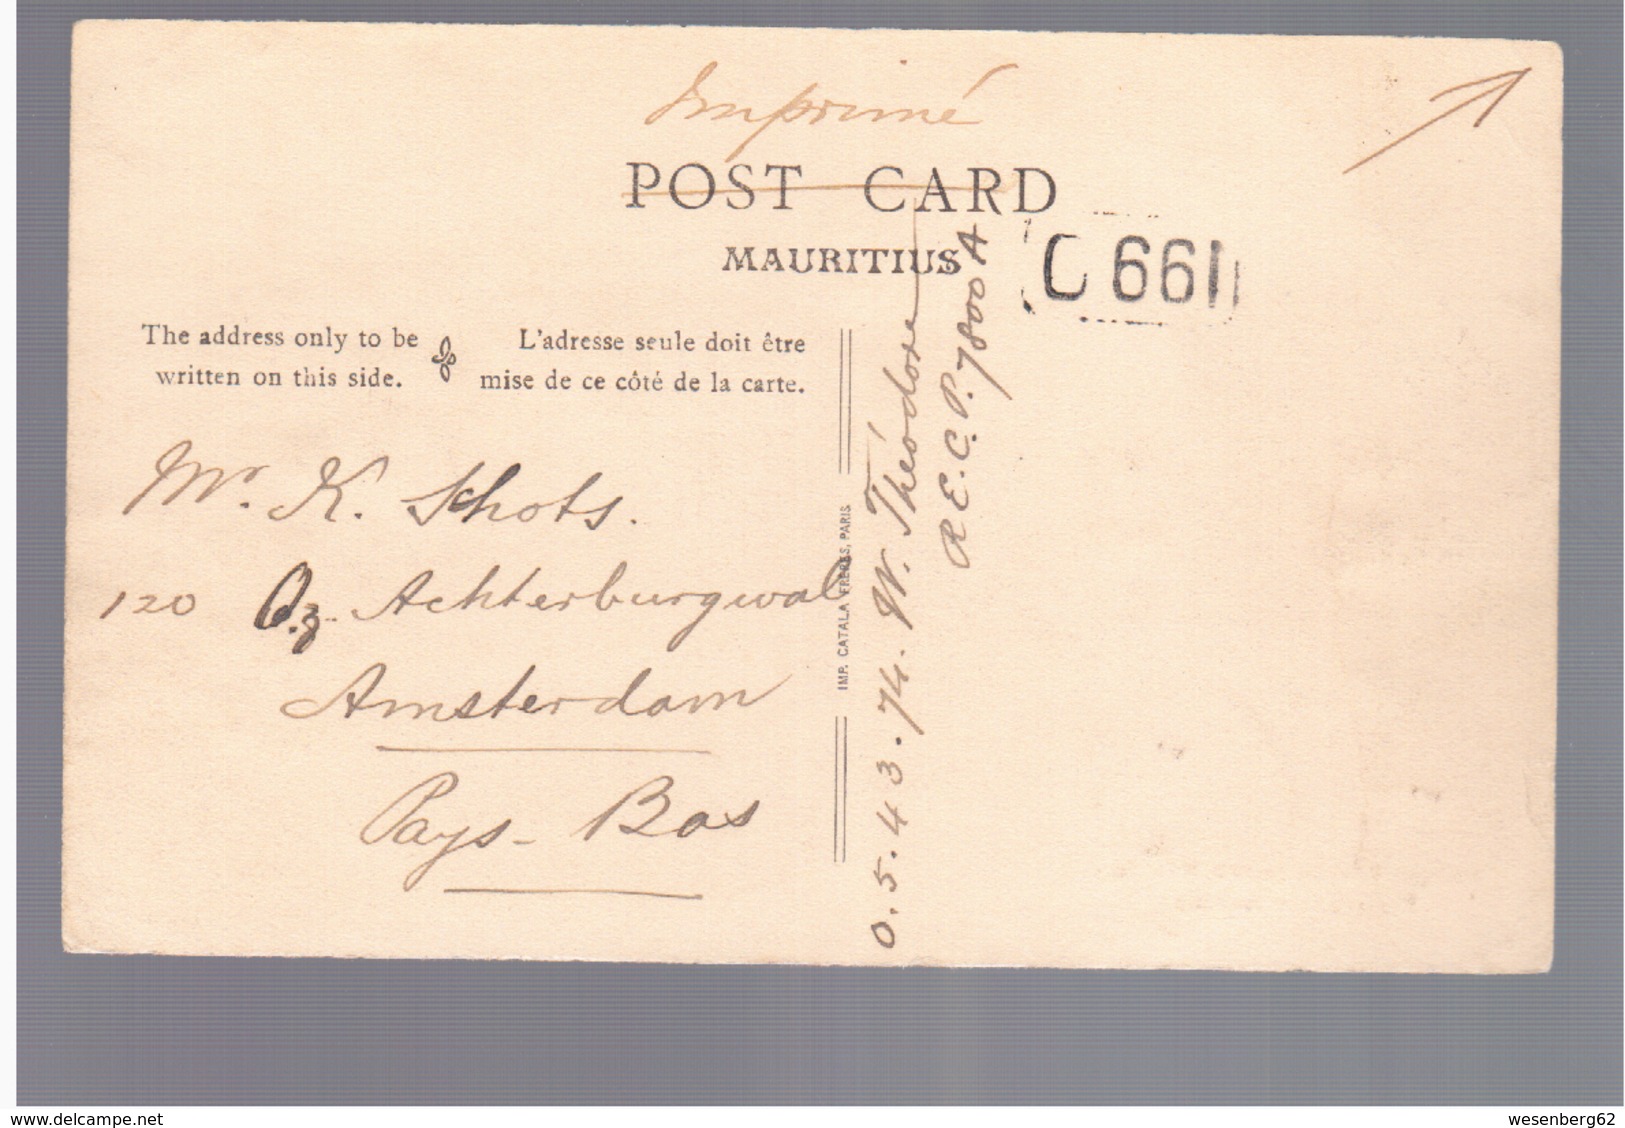 Imprimé
POST CARD
MAURITIUS
C 661
The address only to be
written on this side.
L'adresse seule doit être
mise de ce côté de la carte.
Mr. K. Schots.
120 O.z. Achterburgwal
Amsterdam
Pays-Bas
IMP. CATALA FRÈRES, PARIS
0.5.43.74. W. Théodore
R.E.C.P. 7800 A
www.delcampe.net
wesenberg62